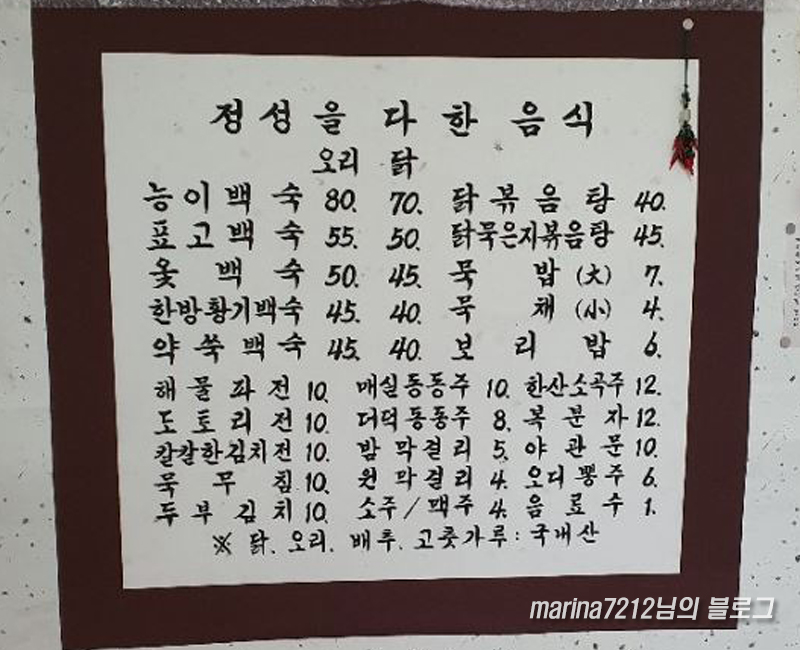 정성을 다한 음식
오리 닭
능이백숙 80. 70. 닭볶음탕 40.
표고백숙 55. 50. 닭묵은지볶음탕 45.
옻백숙 50. 45. 묵밥(大) 7.
한방황기백숙 45. 40. 묵채(小) 4.
약쑥백숙 45. 40. 보리밥 6.
해물파전 10. 매실동동주 10. 한산소곡주 12.
도토리전 10. 더덕동동주 8. 복분자 12.
칼칼한김치전 10. 밤막걸리 5. 야관문 10.
묵무침 10. 원막걸리 4. 오디뽕주 6.
두부김치 10. 소주/맥주 4. 음료수 1.
※ 닭. 오리. 배추. 고춧가루: 국내산
marina7212님의 블로그